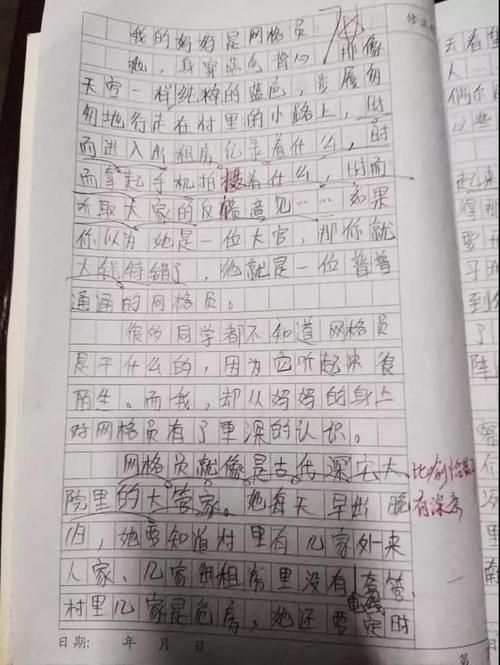 我的妈妈是网格员
她，身穿蓝色背心，那像
天空一样纯粹的蓝色，步履匆
匆地行走在村里的小路上，时
而进入出租房记录着什么，时
而拿起手机拍摄着什么，时而
听取大家的反馈意见……如果
你以为她是一位大官，那你就
大错特错了，她就是一位普普
通通的网格员。
很多同学都不知道网格员
是干什么的，因为它听起来很
陌生。而我，却从妈妈的身上
对网格员有了更深的认识。
网格员就像是古代深宅大
院里的大管家。她每天早出晚
归，她要知道村里有几家外来
人家、几家出租房里没有套管
电线
村里几家是危房，她还要定时
比喻恰当
有深意
去看
人一
俩你
以些
起来
拿那
斗的
到
阵
日期： 年 月 日
第